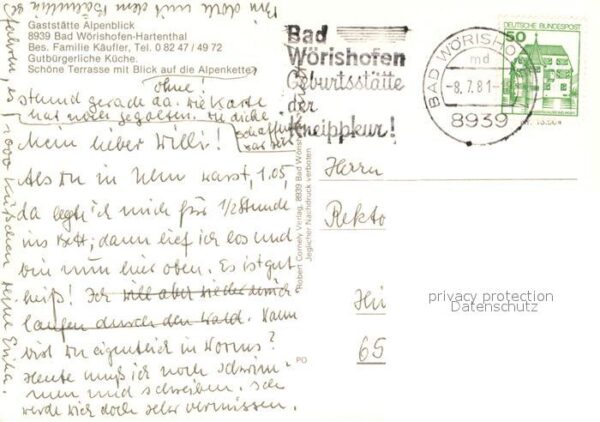 Gaststätte Alpenblick
8939 Bad Wörishofen-Hartenthal
Bes. Familie Käufler, Tel. 0 82 47 / 49 72
Gutbürgerliche Küche.
Schöne Terrasse mit Blick auf die Alpenkette
ohne!
stund gerade da. die Karte
hat
Mein lieber Willi!
Als Du in warst, 1.05,
da legte ich mich für 1/2 Stunde
ins Bett; dann lief ich los und
bin nun hier oben. Es ist gut
heiß! Ich will aber wieder
laufen durch den Wald. Wann
bist Du eigentlich in Worms?
Heute muß ich noch schwim-
men und schreiben. Ich
werde Dich doch sehr vermissen.
1000 Küßchen Deine Erika.
Robert Cornely Verlag, 8939 Bad Wörish
Jeglicher Nachdruck verboten
PO
Bad
Wörishofen
Geburtsstätte
der
Kneippkur!
BAD WÖRISHO
md
-8.7.81-1
8939
DEUTSCHE BUNDESPOST
50
Herrn
Rekto
65
privacy protection
Datenschutz